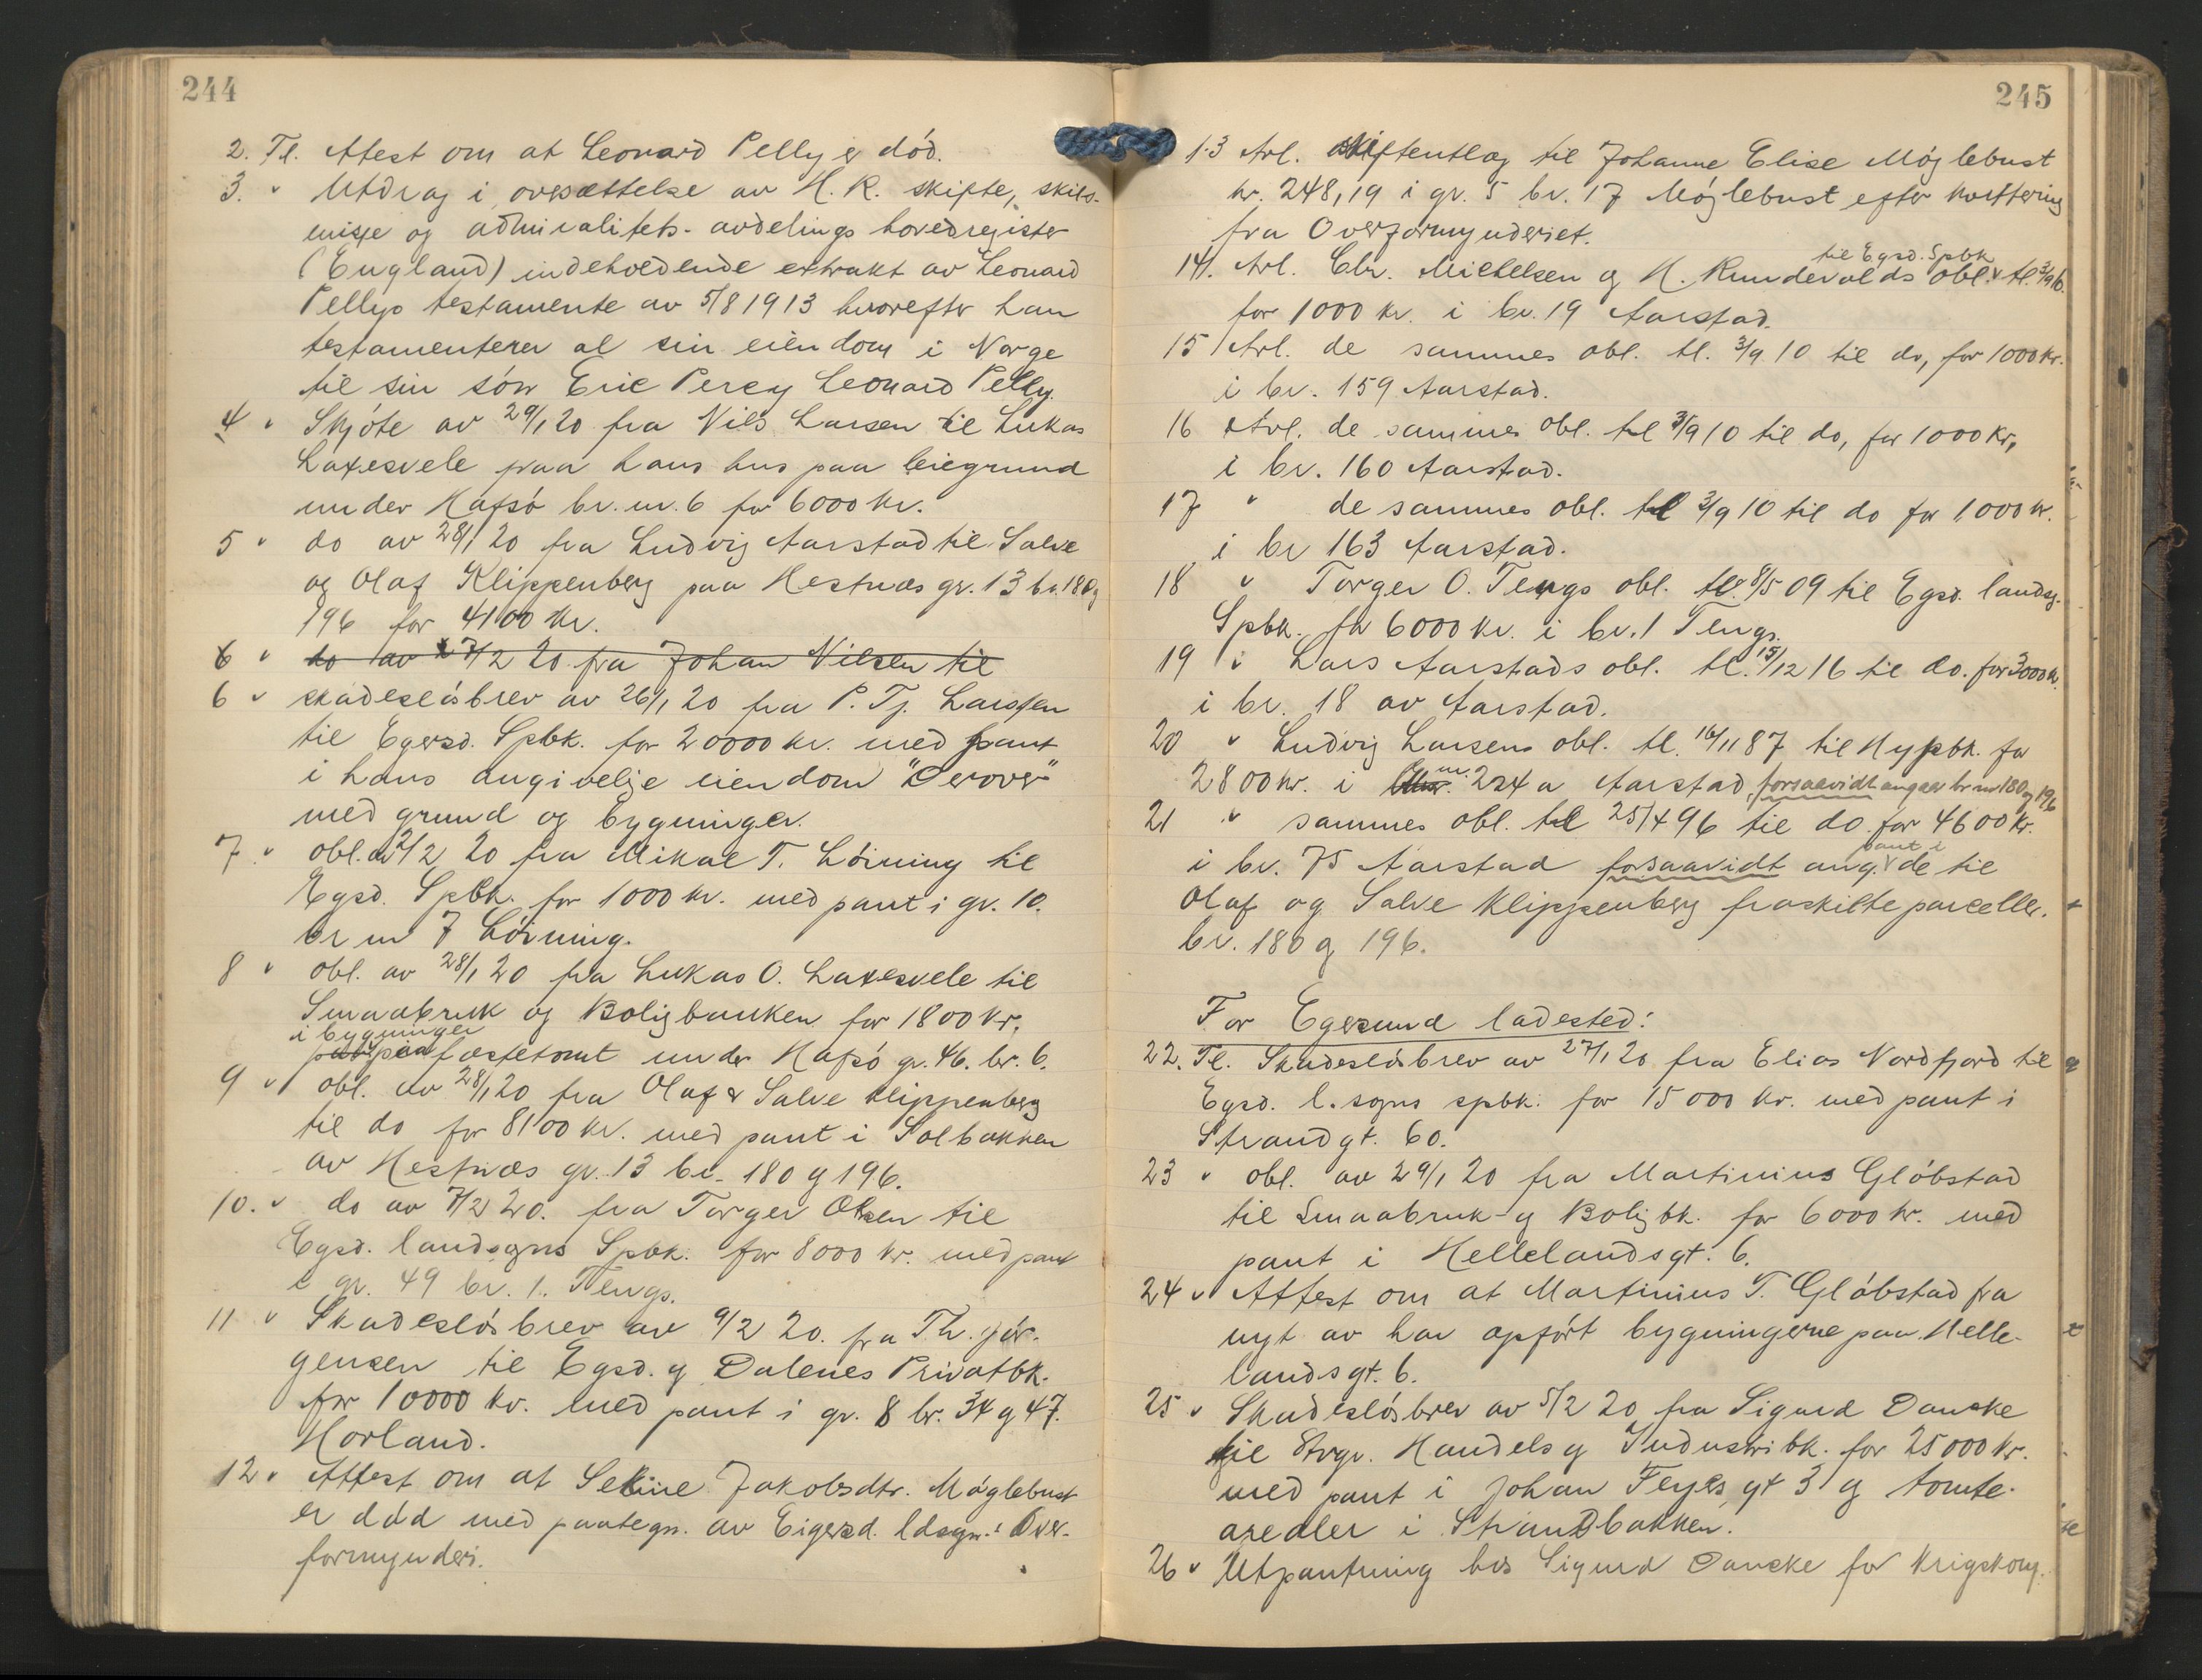 244
2. Tl. Attest om at Leonard Pelly er död.
3. " Utdrag i oversættelse av H. R. skifte, skils-
misse og admiralitets- avdelings hovedregister
(England) indeholdende extrakt av Leonard
Pellys testamente av 5/8 1913 hvorefter han
testamenterer al sin eiendom i Norge
til sin sön Eric Percy Leonard Pelly.
4 " Skjöte av 29/1 20 fra Nils Larsen til Lukas
Laxesvele paa hans hus paa leiegrund
under Hafsö br. nr. 6 for 6000 kr.
5 " do av 28/1 20 fra Ludvig Aarstad til Salve
og Olaf Klippenberg paa Hestnæs gr. 13 br. 180 og
196 for 4100 kr.
6 " do av 7/2 20 fra Johan Nilsen til
6 " skadeslösbrev av 26/1 20 fra P. Tj. Larssen
til Egersd. Spbk. for 20000 kr. med pant
i hans angivelige eiendom "Derover"
med grund og bygninger.
7 " obl. av 2/2 20 fra Mikal T. Löining til
Egsd. Spbk. for 1000 kr. med pant i gr. 10.
br nr 7 Löining.
8 " obl. av 28/1 20 fra Lukas O. Laxesvele til
Smaabruk og Boligbanken for 1800 kr.
i bygninger
paa fæstetomt under Hafsö gr. 46. br. 6.
9 " obl. av 28/1 20 fra Olaf & Salve Klippenberg
til do for 8100 kr. med pant i Solbakken
av Hestnæs gr. 13 br. 180 og 196.
10. " do av 7/2 20. fra Torger Olsen til
Egsd. landsogns Spbk. for 8000 kr. med pant
i gr. 49 br. 1. Tengs.
11 " Skadeslösbrev av 9/2 20. fra Th. Jör-
gensen til Egsd. og Dalenes Privatbk.
for 10000 kr. med pant i gr. 8 br. 34 og 47.
Horland.
12 " Attest om at Seline Jakobsdtr. Möglebust
er död med paategn. av Eigersd. ldsogn.s Over-
formynderi.
245
13 Avl. skiftentlæg til Johanne Elise Möglebust
kr. 248,19 i gr. 5 br. 17 Möglebust efter kvittering
fra Overformynderiet.
til Egsd. Spbk
14. Avl. Chr. Michelsen og H. Rundevolds obl. tl. 3/9 10.
for 1000 kr. i br. 19 Aarstad.
15 Avl. de sammes obl. tl. 3/9 10 til do, for 1000 kr.
i br. 159 Aarstad.
16 Avl. de sammes obl. tl 3/9 10 til do, for 1000 kr,
i br. 160 Aarstad.
17 " de sammes obl. tl 3/9 10 til do for 1000 kr.
i br 163 Aarstad.
18 " Torger O. Tengs obl. tl. 8/5 09 til Egsd. landsg.
Spbk. for 6000 kr. i br. 1 Tengs.
19 " Lars Aarstads obl. tl. 15/12 16 til do. for 3000 kr.
i br. 18 av Aarstad.
20 " Ludvig Larsens obl. tl. 16/11 87 til Hypbk. for
2800 kr. i nr. 224 a Aarstad, forsaavidt angaar br nr 180 og 196
21 " sammes obl. tl 25/4 96 til do for 4600 kr.
pant i
i br. 75 Aarstad forsaavidt ang. de til
Olaf og Salve Klippenberg fraskilte parceller.
br. 180 og 196.
For Egersund ladested:
22. Tl. Skadeslösbrev av 27/1 20 fra Elias Nordfjord til
Egsd. l. sogns spbk. for 15000 kr. med pant i
Strandgt. 60.
23 " obl. av 29/1 20 fra Martinius Glöbstad
til Smaabruk- og Boligbk. for 6000 kr. med
pant i Hellelandsgt. 6.
24 " Attest om at Martinius T. Glöbstad fra
nyt av har opfört bygningerne paa Helle-
landsgt. 6.
25 " Skadeslösbrev av 5/2 20 fra Sigurd Danske
til Stvgr. Handels og Industribk. for 25000 kr.
med pant i Johan Feyes gt 3 og tomte-
arealer i Strandbakken.
26 " Utpantning hos Sigurd Danske for Krigskonj.